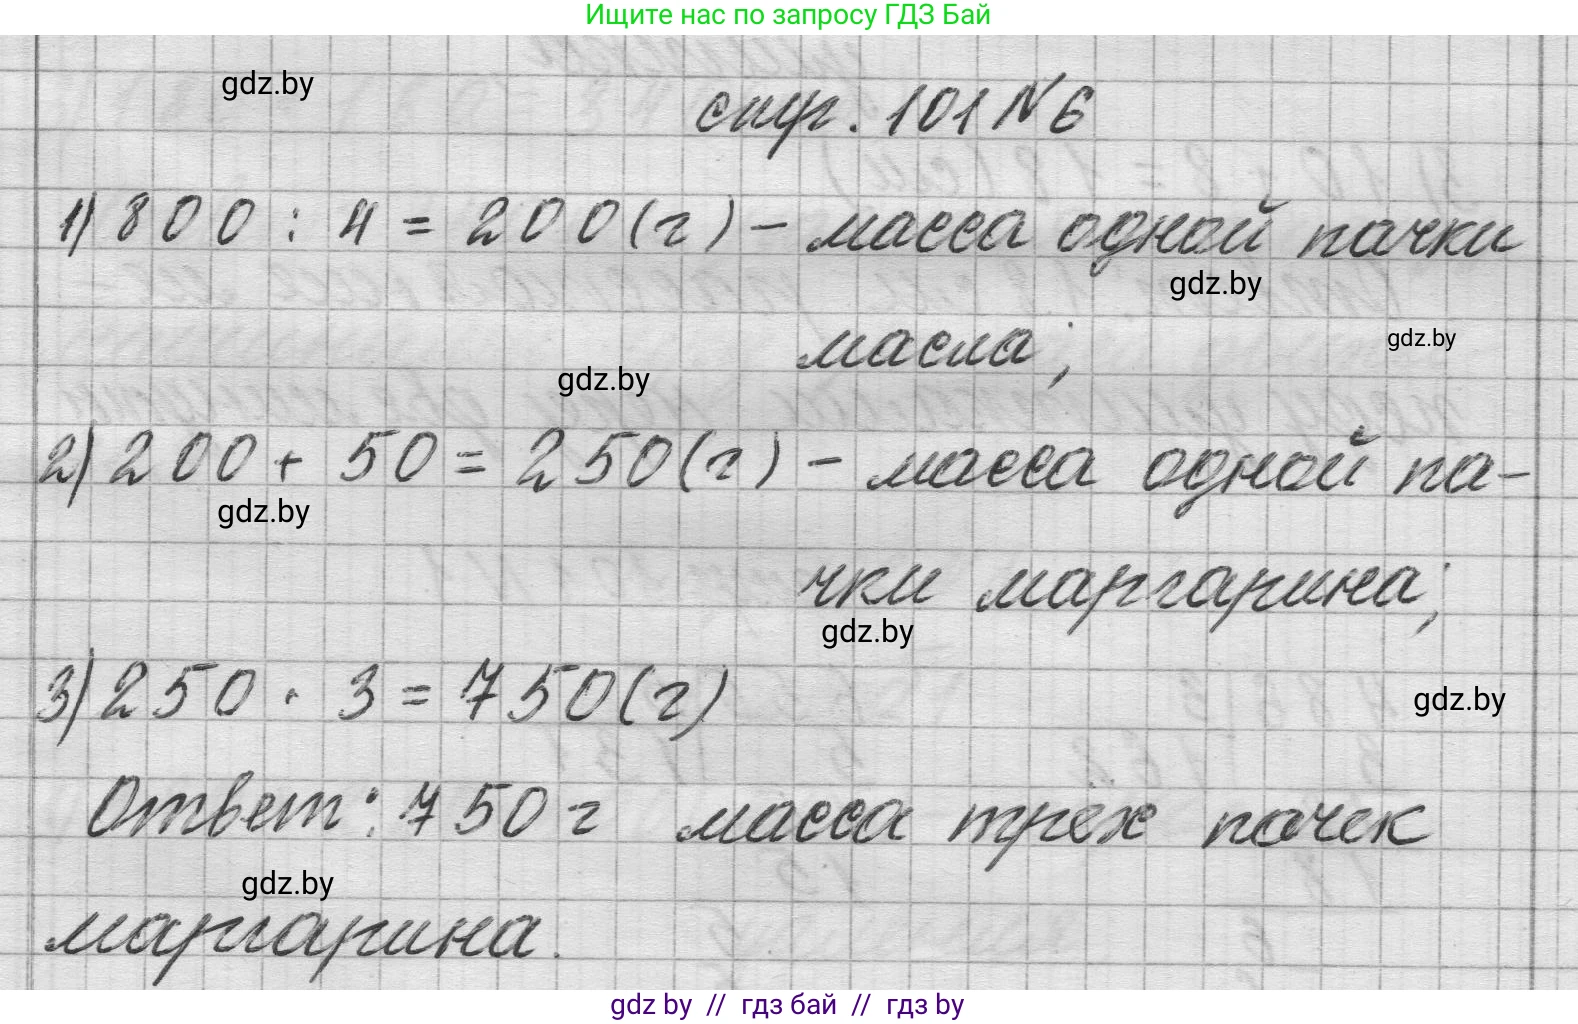 Ищите нас по запросу ГДЗ Бай
gdz.by
стр. 101 N 6
1) 800 : 4 = 200 (г) - масса одной пачки
gdz.by
масла;
gdz.by
gdz.by
2) 200 + 50 = 250 (г) - масса одной па-
gdz.by
чки маргарина;
gdz.by
3) 250 · 3 = 750 (г)
gdz.by
Ответ: 750 г масса трёх пачек
gdz.by
маргарина.
gdz by // гдз бай // гдз by